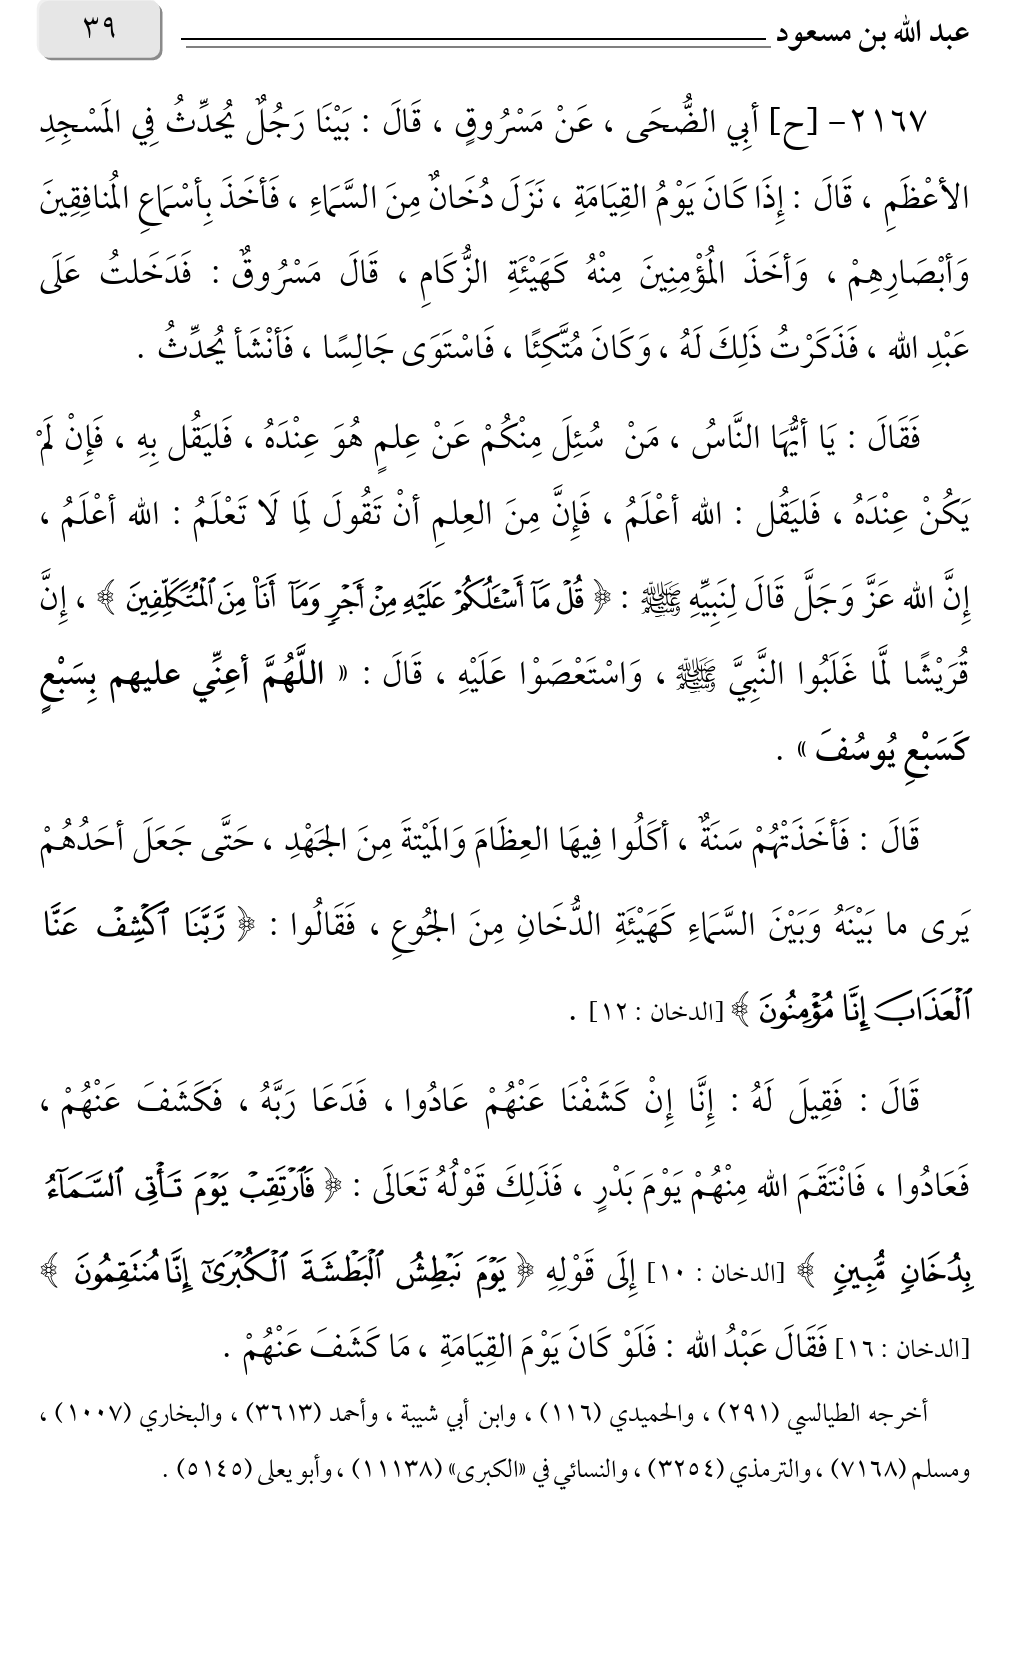 عبد الله بن مسعود
٣٩
٢١٦٧- [ح] أبِي الضُّحَى ، عَنْ مَسْرُوقٍ ، قَالَ : بَيْنَا رَجُلٌ يُحدِّثُ فِي المَسْجِدِ
الأعْظَمِ ، قَالَ : إِذَا كَانَ يَوْمُ القِيَامَةِ ، نَزَلَ دُخَانٌ مِنَ السَّمَاءِ ، فَأخَذَ بِأسْمَاعِ المُنافِقِينَ
وَأبْصَارِهِمْ ، وَأخَذَ المُؤْمِنِينَ مِنْهُ كَهَيْئَةِ الزُّكَامِ ، قَالَ مَسْرُوقٌ : فَدَخَلتُ عَلَى
عَبْدِ الله ، فَذَكَرْتُ ذَلِكَ لَهُ ، وَكَانَ مُتَّكِئًا ، فَاسْتَوَى جَالِسًا ، فَأنْشَأ يُحدِّثُ .
فَقَالَ : يَا أيُّهَا النَّاسُ ، مَنْ سُئِلَ مِنْكُمْ عَنْ عِلمٍ هُوَ عِنْدَهُ ، فَليَقُل بِهِ ، فَإِنْ لَمْ
يَكُنْ عِنْدَهُ ، فَليَقُل : الله أعْلَمُ ، فَإِنَّ مِنَ العِلمِ أنْ تَقُولَ لِمَا لَا تَعْلَمُ : الله أعْلَمُ ،
إِنَّ الله عَزَّ وَجَلَّ قَالَ لِنَبِيِّهِ ﷺ : ﴿ قُلْ مَآ أَسْـَٔلُكُمْ عَلَيْهِ مِنْ أَجْرٍ وَمَآ أَنَا۠ مِنَ ٱلْمُتَكَلِّفِينَ ﴾ ، إِنَّ
قُرَيْشًا لَمَّا غَلَبُوا النَّبِيَّ ﷺ ، وَاسْتَعْصَوْا عَلَيْهِ ، قَالَ : « اللَّهُمَّ أعِنِّي عليهم بِسَبْعٍ
كَسَبْعِ يُوسُفَ » .
قَالَ : فَأخَذَتْهُمْ سَنَةٌ ، أكَلُوا فِيهَا العِظَامَ وَالمَيْتةَ مِنَ الجَهْدِ ، حَتَّى جَعَلَ أحَدُهُمْ
يَرى ما بَيْنَهُ وَبَيْنَ السَّمَاءِ كَهَيْئَةِ الدُّخَانِ مِنَ الجُوعِ ، فَقَالُوا : ﴿ رَّبَّنَا ٱكْشِفْ عَنَّا
ٱلْعَذَابَ إِنَّا مُؤْمِنُونَ ﴾ [الدخان : ١٢] .
قَالَ : فَقِيلَ لَهُ : إِنَّا إِنْ كَشَفْنَا عَنْهُمْ عَادُوا ، فَدَعَا رَبَّهُ ، فَكَشَفَ عَنْهُمْ ،
فَعَادُوا ، فَانْتَقَمَ الله مِنْهُمْ يَوْمَ بَدْرٍ ، فَذَلِكَ قَوْلُهُ تَعَالَى : ﴿ فَٱرْتَقِبْ يَوْمَ تَأْتِى ٱلسَّمَآءُ
بِدُخَانٍ مُّبِينٍ ﴾ [الدخان : ١٠] إِلَى قَوْلِهِ ﴿ يَوْمَ نَبْطِشُ ٱلْبَطْشَةَ ٱلْكُبْرَىٰٓ إِنَّا مُنتَقِمُونَ ﴾
[الدخان : ١٦] فَقَالَ عَبْدُ الله : فَلَوْ كَانَ يَوْمَ القِيَامَةِ ، مَا كَشَفَ عَنْهُمْ .
أخرجه الطيالسي (٢٩١) ، والحميدي (١١٦) ، وابن أبي شيبة ، وأحمد (٣٦١٣) ، والبخاري (١٠٠٧) ،
ومسلم (٧١٦٨) ، والترمذي (٣٢٥٤) ، والنسائي في «الكبرى» (١١١٣٨) ، وأبو يعلى (٥١٤٥) .